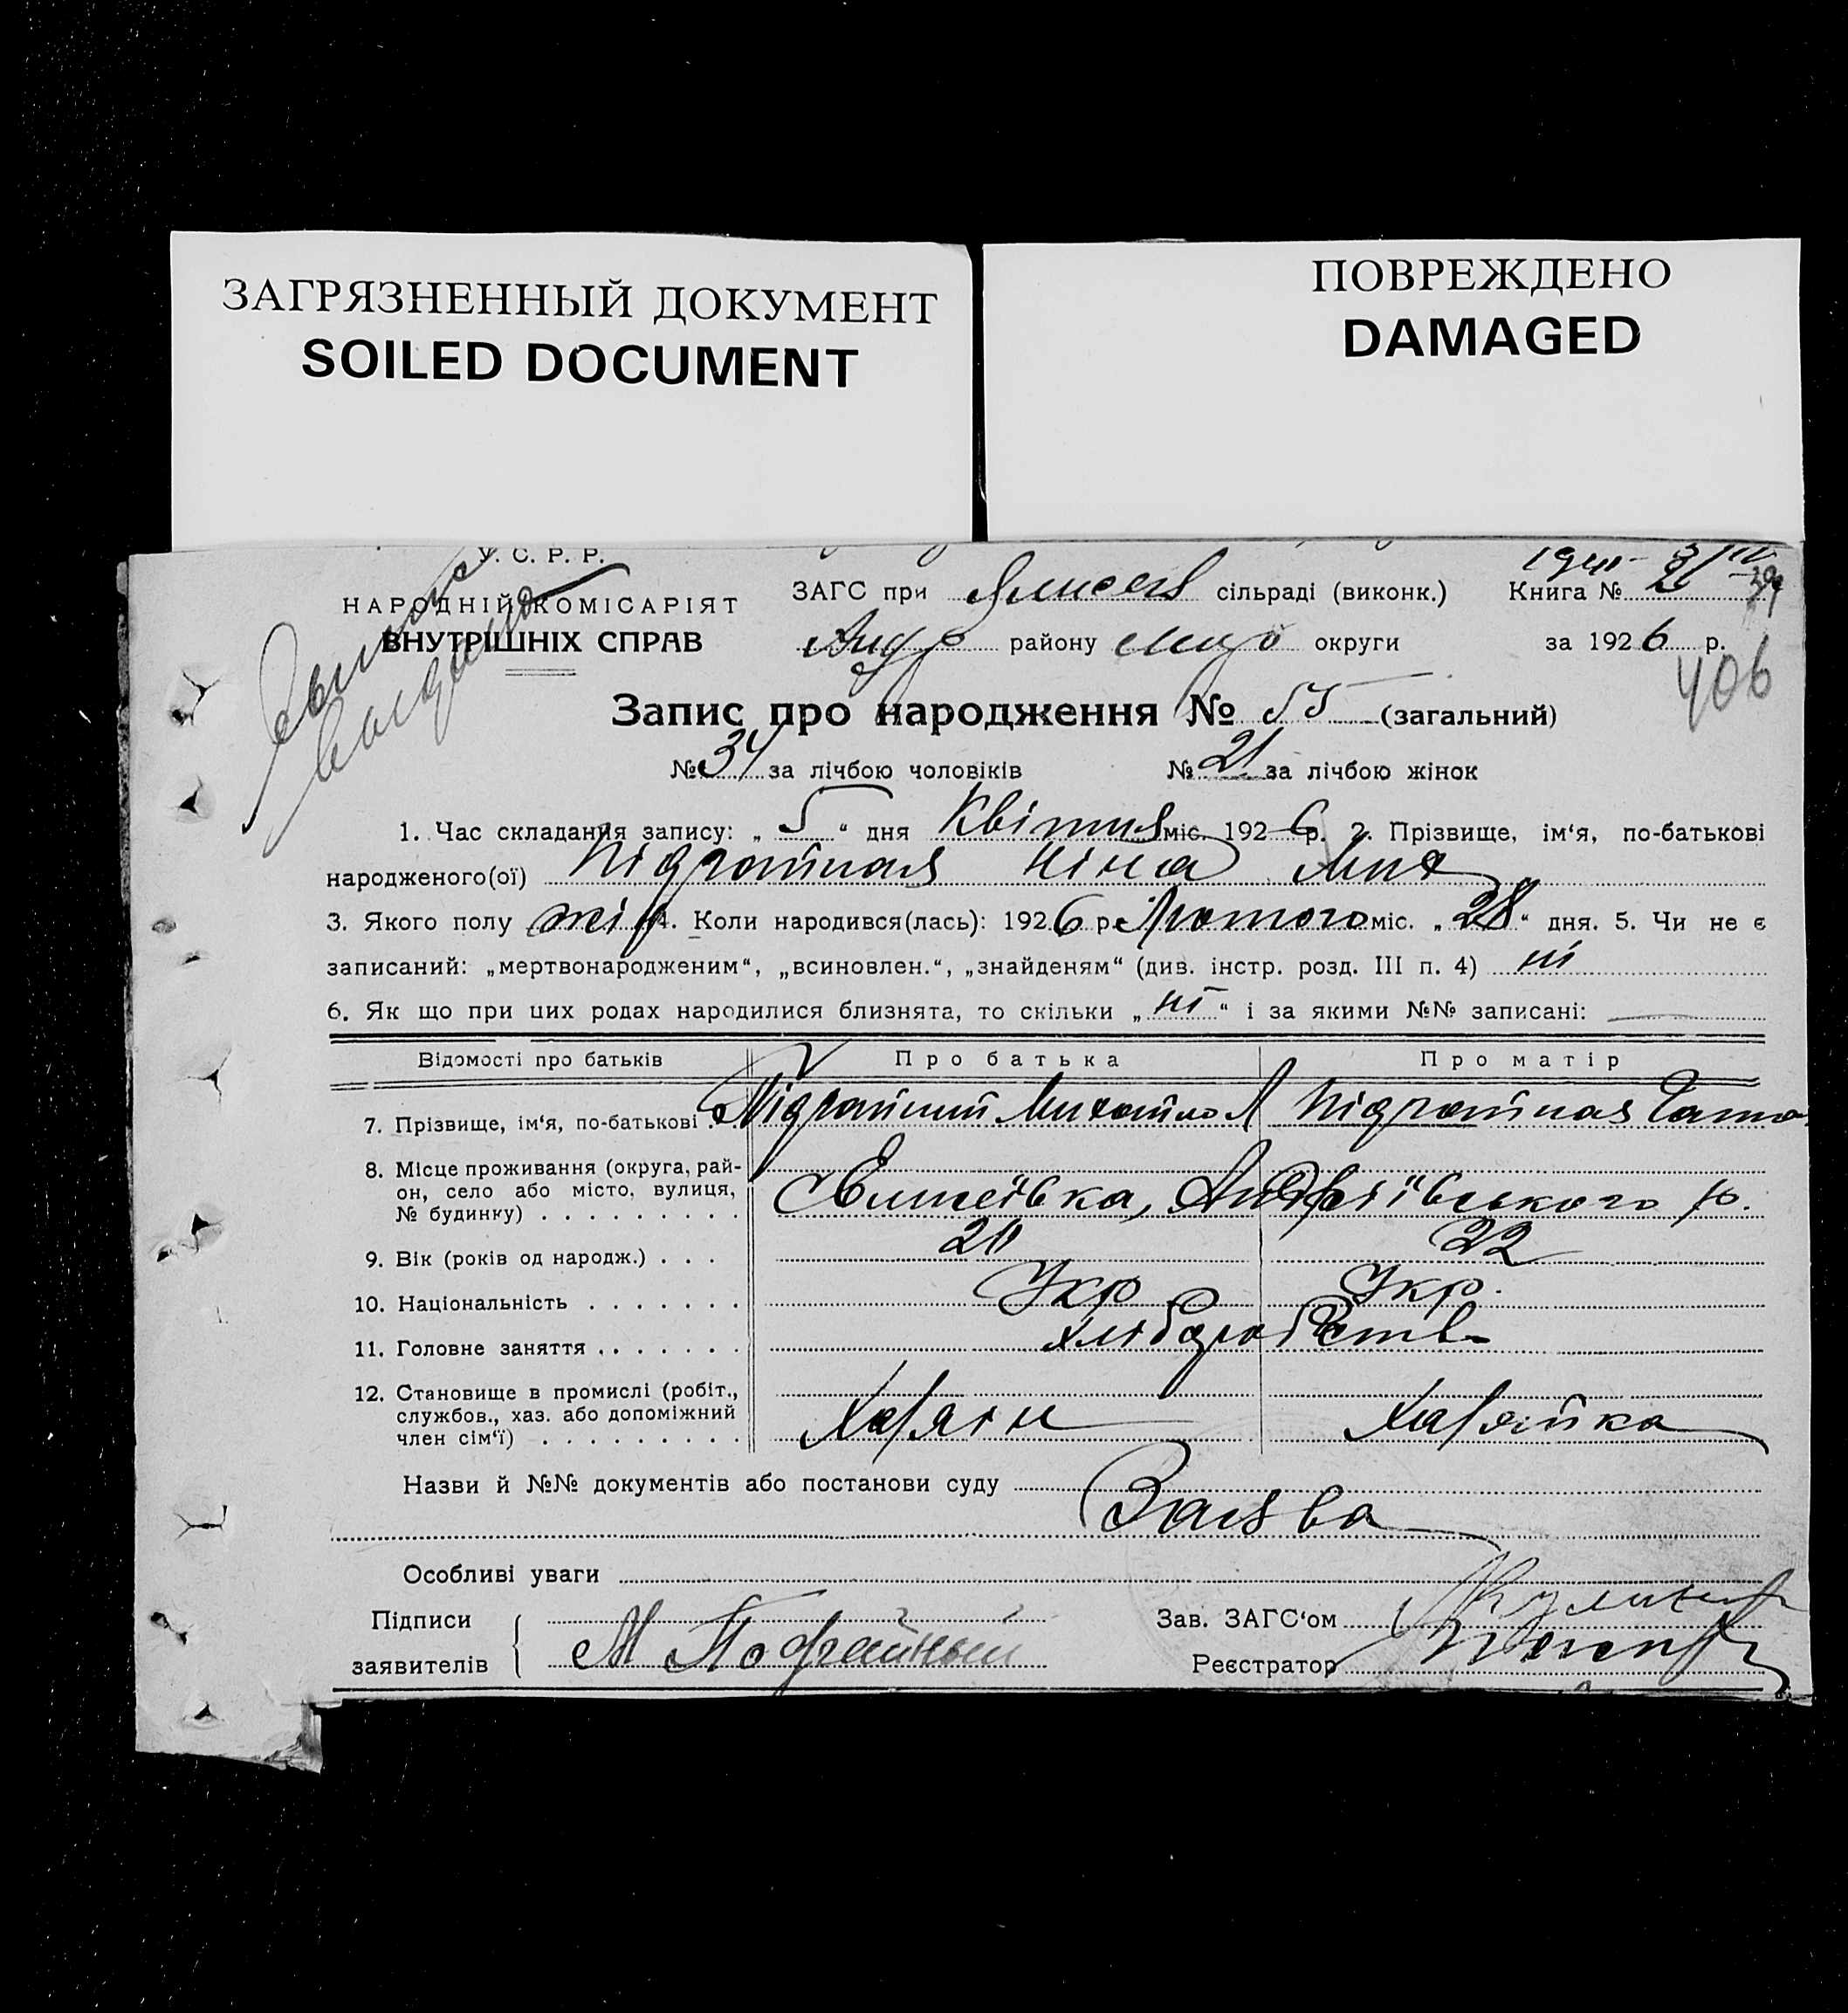 ЗАГРЯЗНЕННЫЙ ДОКУМЕНТ
SOILED DOCUMENT
ПОВРЕЖДЕНО
DAMAGED
У. С. Р. Р.
НАРОДНІЙ КОМІСАРІЯТ
ВНУТРІШНІХ СПРАВ
ЗАГС при сільраді (виконк.) Книга № 2
Андр району округи за 1926 р.
406
Запис про народження № 55 (загальний)
№ 34 за лічбою чоловіків № 21 за лічбою жінок
1. Час складання запису: „ 5 “ дня Квітня міс. 1926 р. 2. Прізвище, ім‘я, по-батькові
народженого(ої) Підгайная Ніна Мих
3. Якого полу жін 4. Коли народився(лась): 1926 р. Лютого міс. „ 28 “ дня. 5. Чи не є
записаний: „мертвонародженим“, „всиновлен.“, „знайденям“ (див. інстр. розд. III п. 4) ні
6. Як що при цих родах народилися близнята, то скільки „ ні “ і за якими №№ записані:
Відомості про батьків Про батька Про матір
7. Прізвище, ім‘я, по-батькові . . Підгайний Михайло Л Підгайная
8. Місце проживання (округа, рай-
он, село або місто, вулиця,
№ будинку) . . . . . . . . . Єлисеївка, Андріївського р.
9. Вік (років од народж.) . . . 20 22
10. Національність . . . . . . . Укр Укр.
11. Головне заняття . . . . . . .
12. Становище в промислі (робіт.,
службов., хаз. або допоміжний
член сім‘ї) . . . . . . . . . Хазяін Хазяйка
Назви й №№ документів або постанови суду Заява
Особливі уваги
Підписи
заявителів
М
Зав. ЗАГС‘ом
Реєстратор